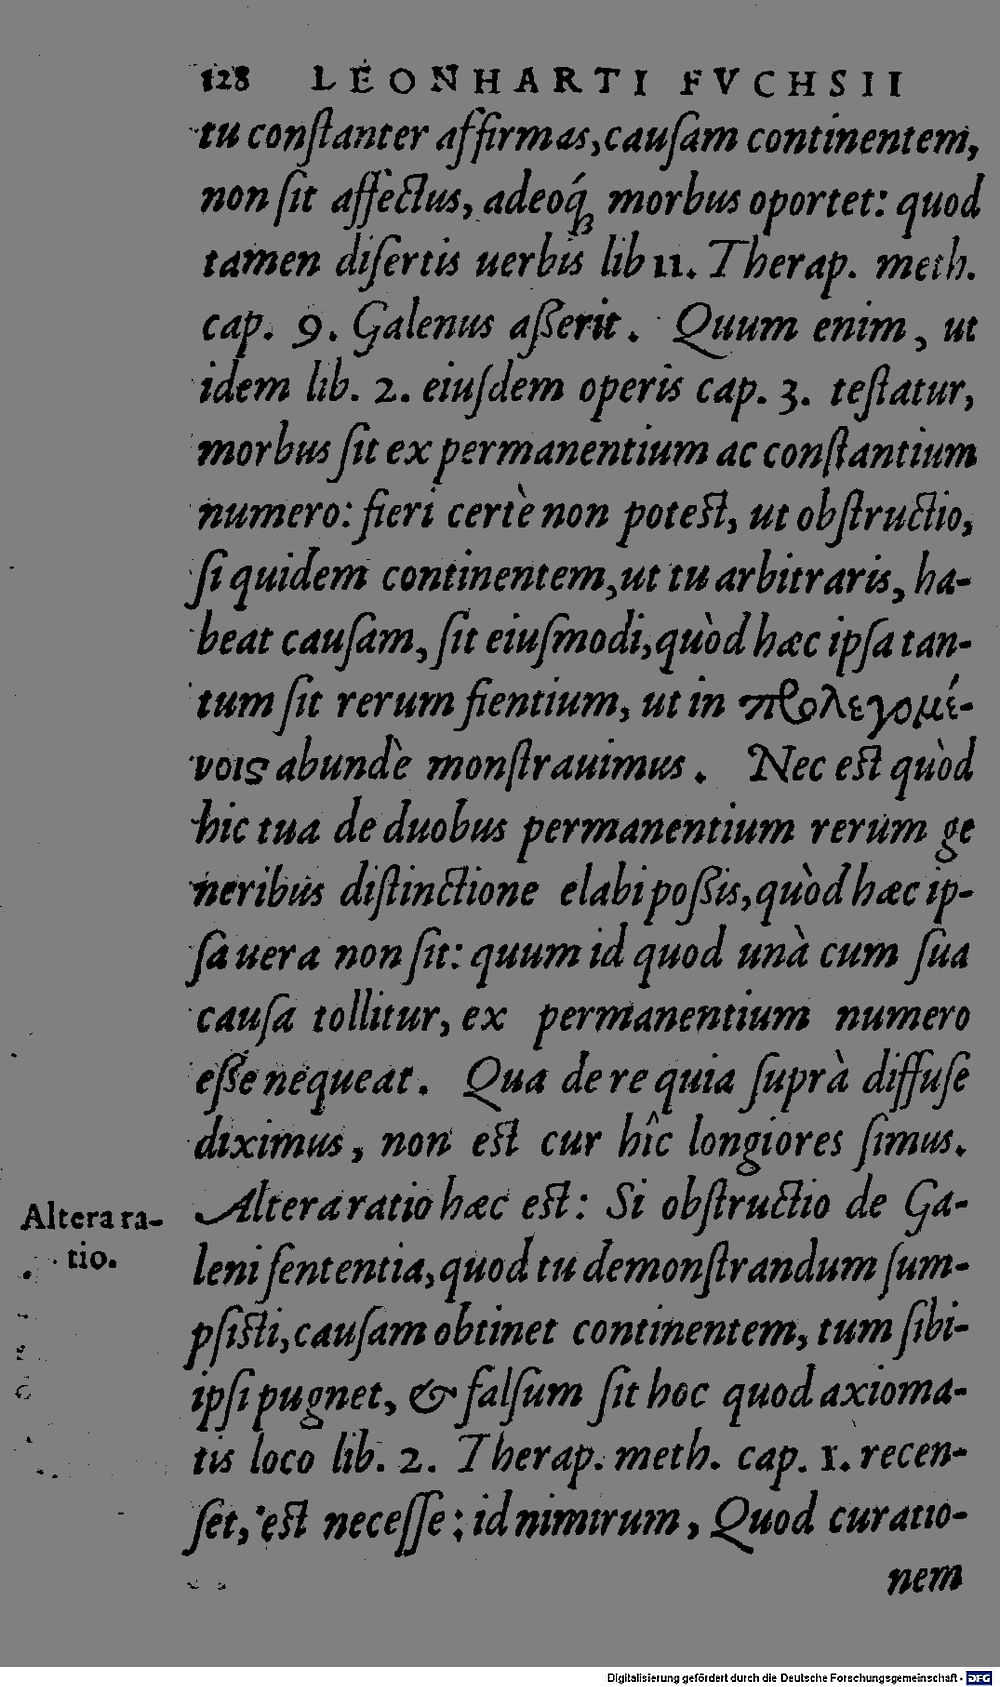 128 LEONHARTI FVCHSII
tu conſtanter affirmas, cauſam continentem,
non ſit affectus, adeoq́ꝫ morbus oportet: quod
tamen diſertis uerbis lib 11. Therap. meth.
cap. 9. Galenus aßerit. Quum enim, ut
idem lib. 2. eiuſdem operis cap. 3. teſtatur,
morbus ſit ex permanentium ac conſtantium
numero: fieri certè non poteſt, ut obſtructio,
ſi quidem continentem, ut tu arbitraris, ha-
beat cauſam, ſit eiuſmodi, quòd hæc ipſa tan-
tum ſit rerum fientium, ut in προλεγομέ-
νοις abundè monſtrauimus. Nec eſt quòd
hic tua de duobus permanentium rerum ge
neribus diſtinctione elabi poßis, quòd hæc ip-
ſa uera non ſit: quum id quod unà cum ſua
cauſa tollitur, ex permanentium numero
eße nequeat. Qua de re quia ſuprà diffuſe
diximus, non eſt cur hîc longiores ſimus.
Altera ratio hæc eſt: Si obſtructio de Ga-
Altera ra-
tio.
leni ſententia, quod tu demonſtrandum ſum-
pſiſti, cauſam obtinet continentem, tum ſibi-
ipſi pugnet, & falſum ſit hoc quod axioma-
tis loco lib. 2. Therap. meth. cap. 1. recen-
ſet, eſt neceſſe: id nimirum, Quod curatio-
nem
Digitalisierung gefördert durch die Deutsche Forschungsgemeinschaft - DFG